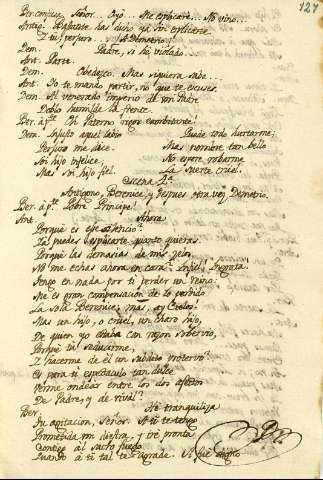 127
Ber. Señor. Oyó... Me explicaré. No vino...
Antig. Bastante has dicho ya sin explicarte
Y tú perjuro. (A Demetrio)
Dem. Padre, si he violado...
Ant. Parte.
Dem. Obedezco. Mas siquiera sabe...
Ant. Yo te mando partir, no que te escuses.
Dem. Al venerado imperio de un Padre
Doblo humilde la frente
Ber. áp.te Oh Paterno rigor
Dem. Injusto aquel labio
Perfido me dice.
Mi hijo infelice,
Mas mi hijo fiel.
Puede todo hurtarme;
Mas nombre tan bello
No espere robarme
La suerte cruel.
Scena 2.a
Antigono, Berenice, y despues otra vez Demetrio.
Ber. á p.te Pobre Principe!
Ant. Ahora
Porqué es ese silencio?
Ya puedes explicarte quanto quieras.
Porqué las demasias de mis zelos
No me echas ahora en cara? Infiel! Ingrata!
Tengo en nada por ti perder un reino:
Me es gran compensacion de lo perdido
La sola Berenice: mas, ay Cielos!
Mas un hijo, o cruel, un charo hijo,
De quien yo estaba con razon sobervio,
Porqué tu seducirme,
Y hacerme de él un subdito protervo?
Es para ti espectaculo tan dulce
Verme ondear entre los dos afectos
De Padre, y de rival?
Ber. Ah tranquiliza
Tu agitacion, Señor. A ti te tengo
Prometida mi diestra, y iré pronta
Contigo al sacro fuego
Quando á ti tal te agrade. Si fue